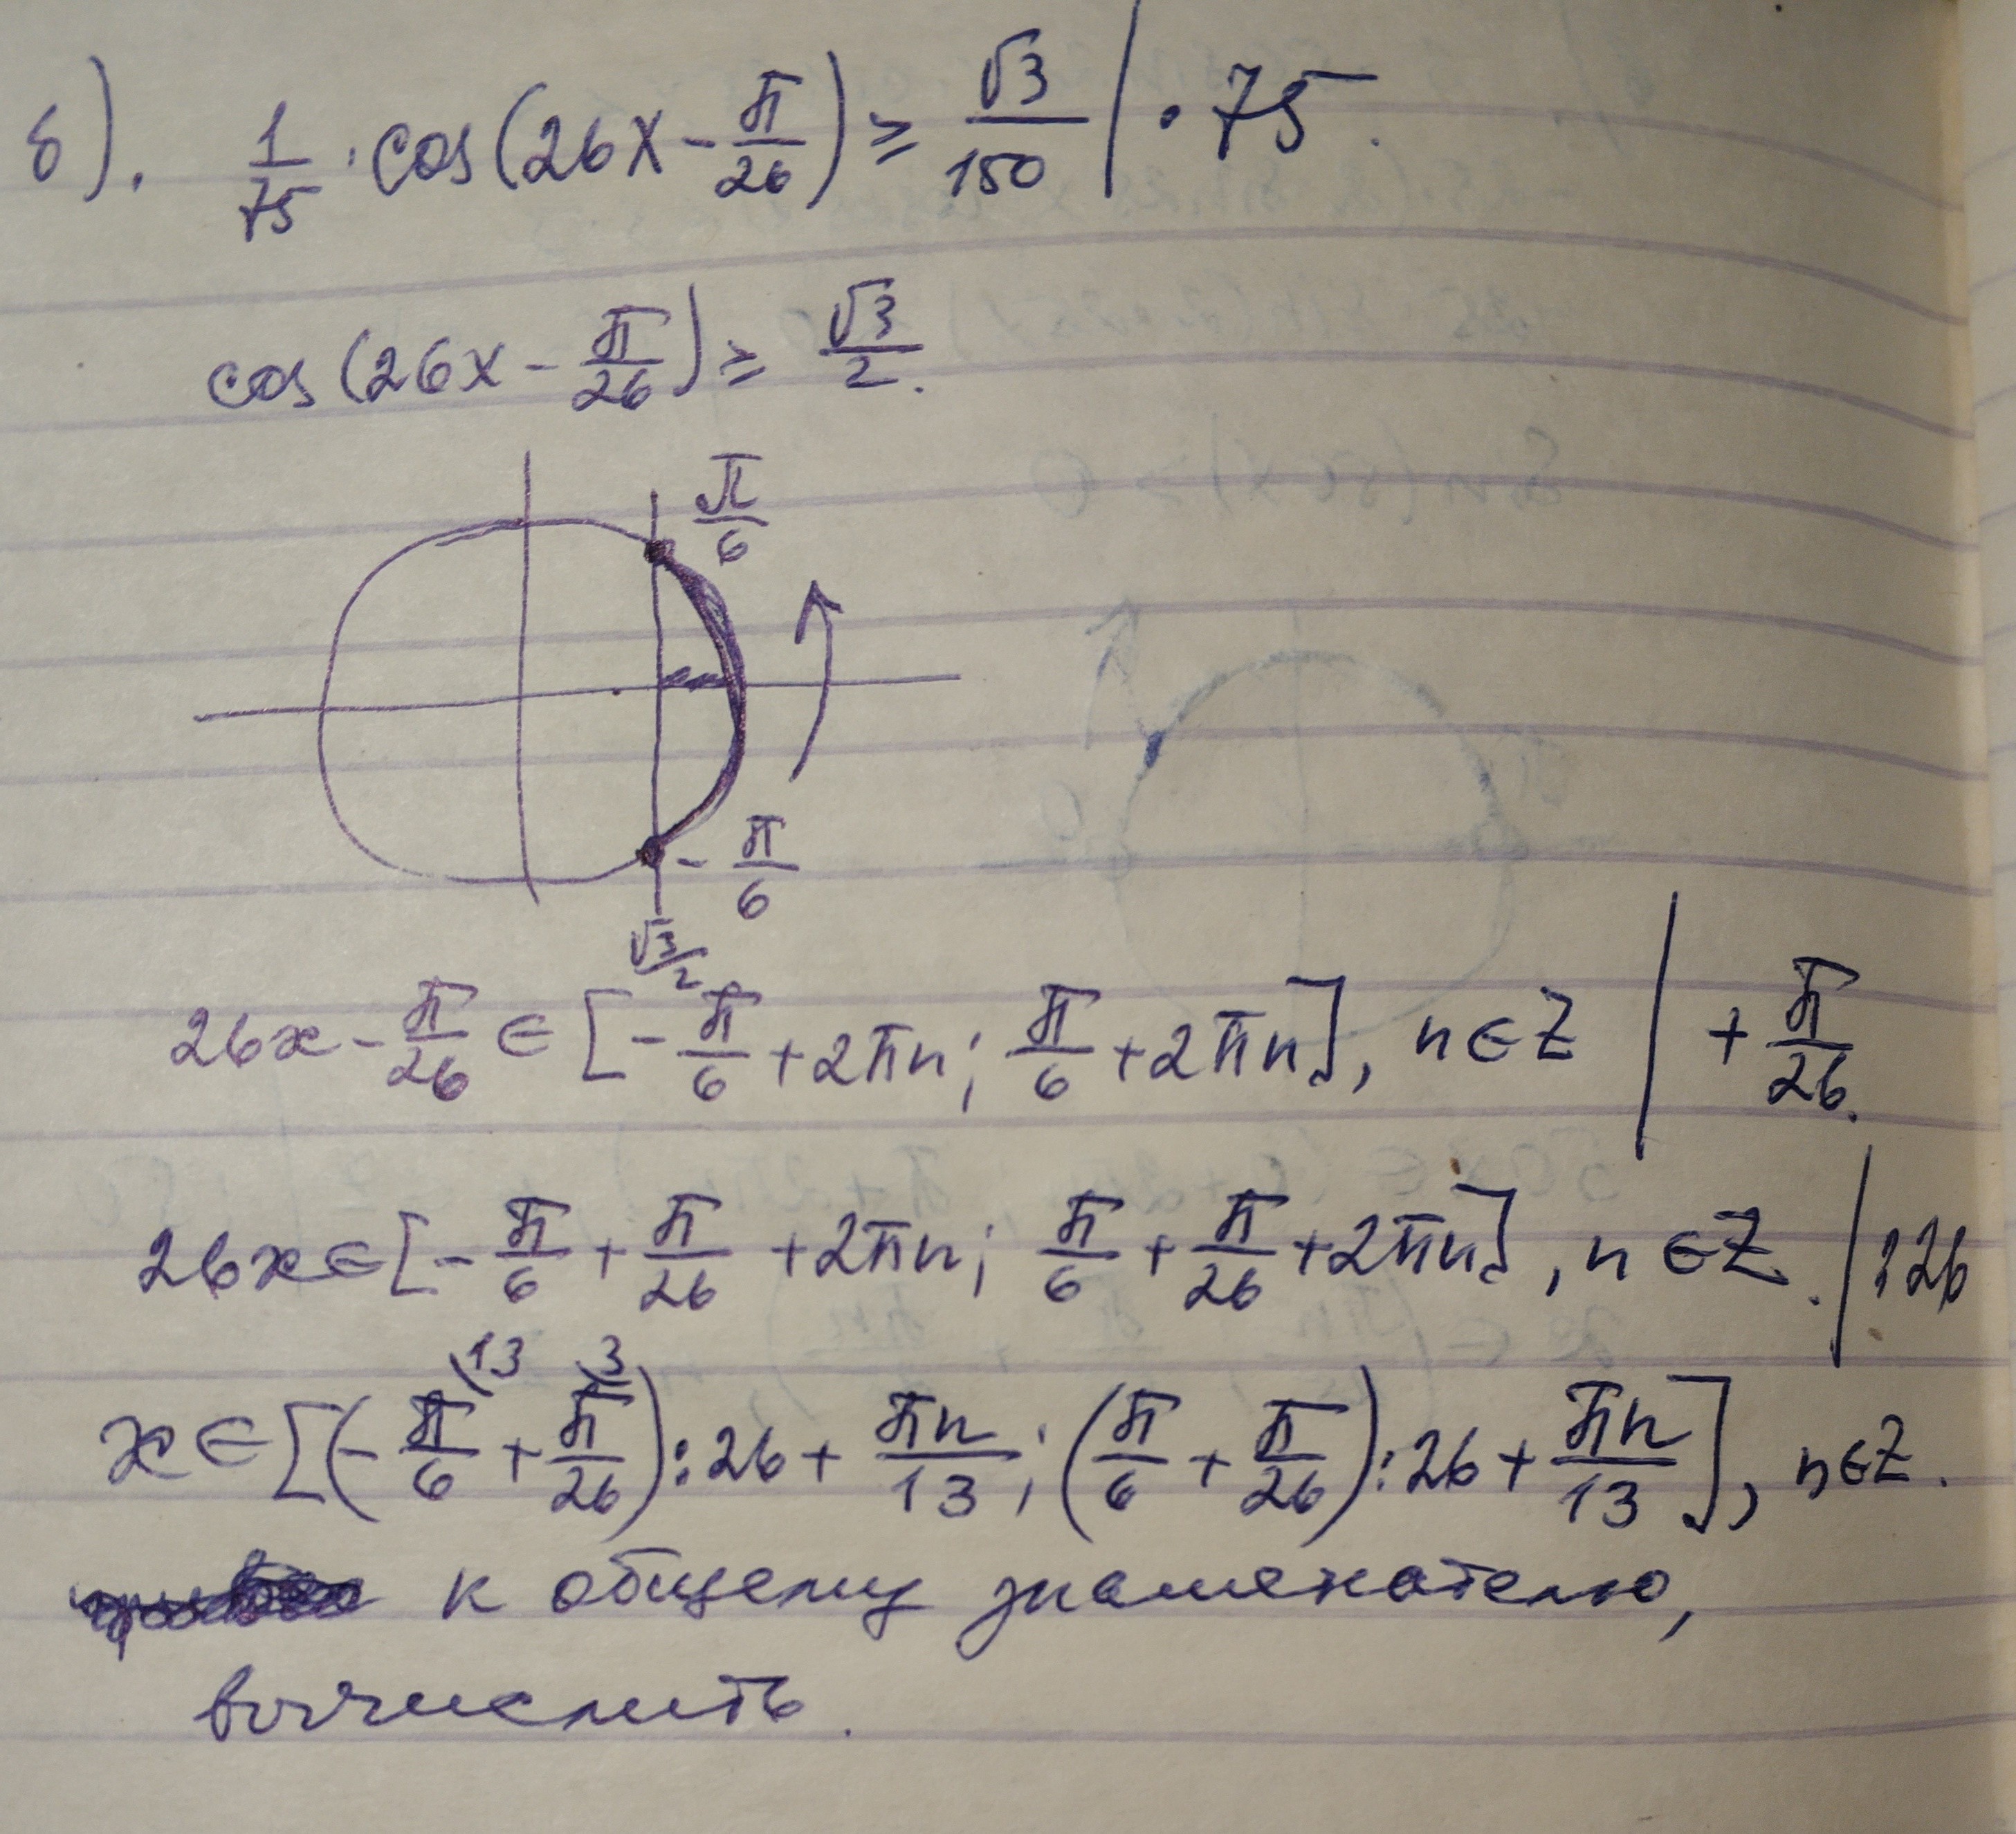 б). 1/75 · cos(26x - π/26) ≥ √3/150 | · 75.
cos(26x - π/26) ≥ √3/2.
π/6
- π/6
√3/2
26x - π/26 ∈ [- π/6 + 2πn; π/6 + 2πn], n ∈ Z | + π/26.
26x ∈ [- π/6 + π/26 + 2πn; π/6 + π/26 + 2πn], n ∈ Z. | :26
x ∈ [(- π/6 \13 + π/26 \3) : 26 + πn/13; (π/6 + π/26) : 26 + πn/13], n ∈ Z.
к общему знаменателю,
вычислить.